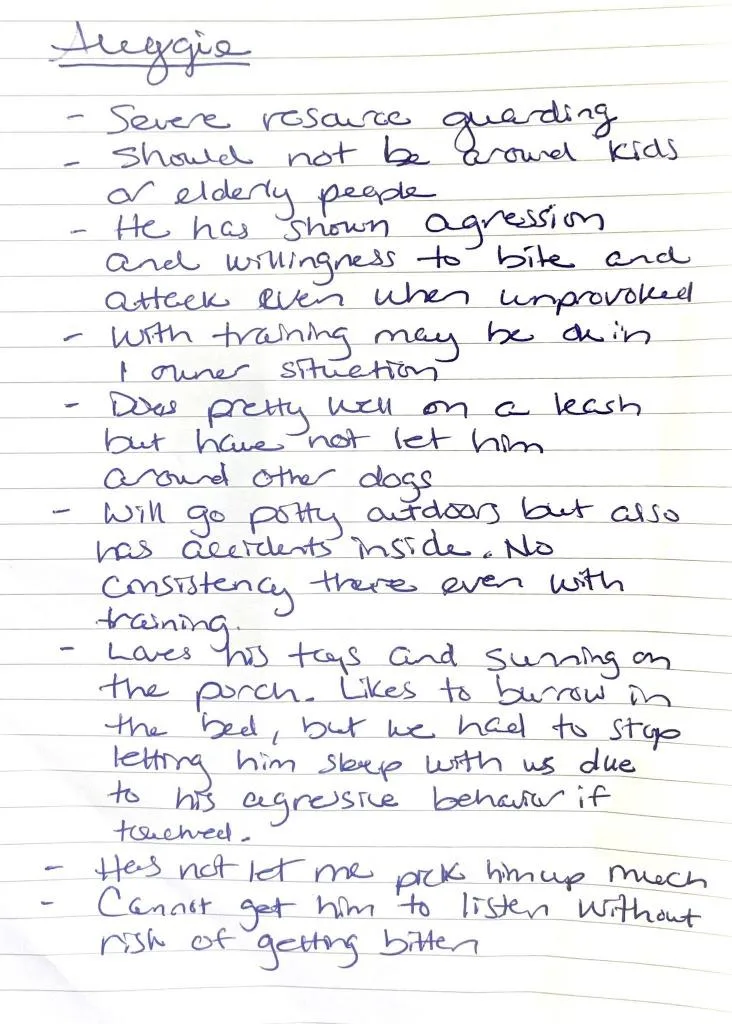 Auggie
- Severe resource guarding
- Should not be around kids
or elderly people
- He has shown agression
and willingness to bite and
attack even when unprovoked
- With training may be ok in
1 owner situation
- Does pretty well on a leash
but have not let him
around other dogs
- Will go potty outdoors but also
has accidents inside. No
consistency there even with
training.
- Loves his toys and sunning on
the porch. Likes to burrow in
the bed, but we had to stop
letting him sleep with us due
to his agressive behavior if
touched.
- Has not let me pick him up much
- Cannot get him to listen without
risk of getting bitten